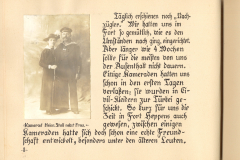 Täglich erschienen noch „Nach-
zügler." Wir hatten uns im
Fort so gemütlich, wie es den
Umständen nach ging, eingerichtet.
Aber länger wie 4 Wochen
sollte für die meisten von uns
der Aufenthalt nicht dauern.
Einige Kameraden hatten uns
schon in den ersten Tagen
verlassen; sie wurden in Ci-
vil-Kleidern zur Türkei ge-
schickt. So kurz für uns die
Zeit in Fort Heppens auch
gewesen, zwischen einigen
Kameraden hatte sich doch schon eine echte Freund-
schaft entwickelt, besonders unter den älteren Leuten,
Kamerad und Frau